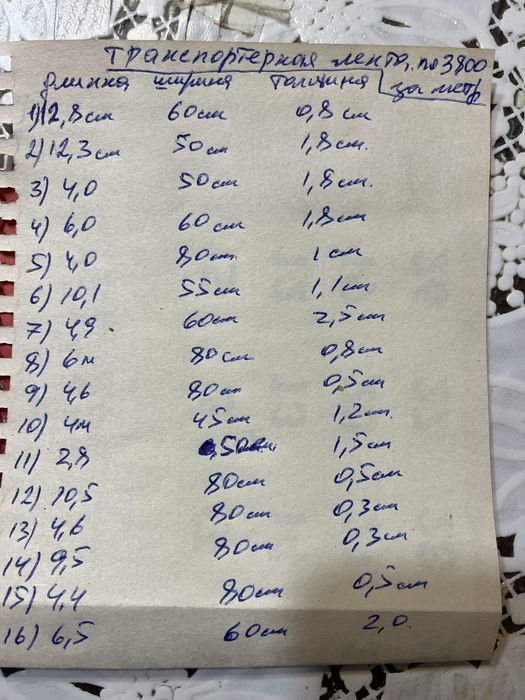 Транспортерная лента, по 3800
длинна ширина толщина за метр
1) 12,8см 60см 0,8см
2) 12,3см 50см 1,8см.
3) 4,0 50см 1,8см.
4) 6,0 60см 1,8см
5) 4,0 80см 1см
6) 10,1 55см 1,1см
7) 4,9 60см 2,5см
8) 6м 80см 0,8см
9) 4,6 80см 0,5см
10) 4м 45см 1,2см.
11) 2,8 50см 1,5см
12) 10,5 80см 0,5см
13) 4,6 80см 0,3см
14) 9,5 80см 0,3см
15) 4,4 80см 0,5см
16) 6,5 60см 2,0.